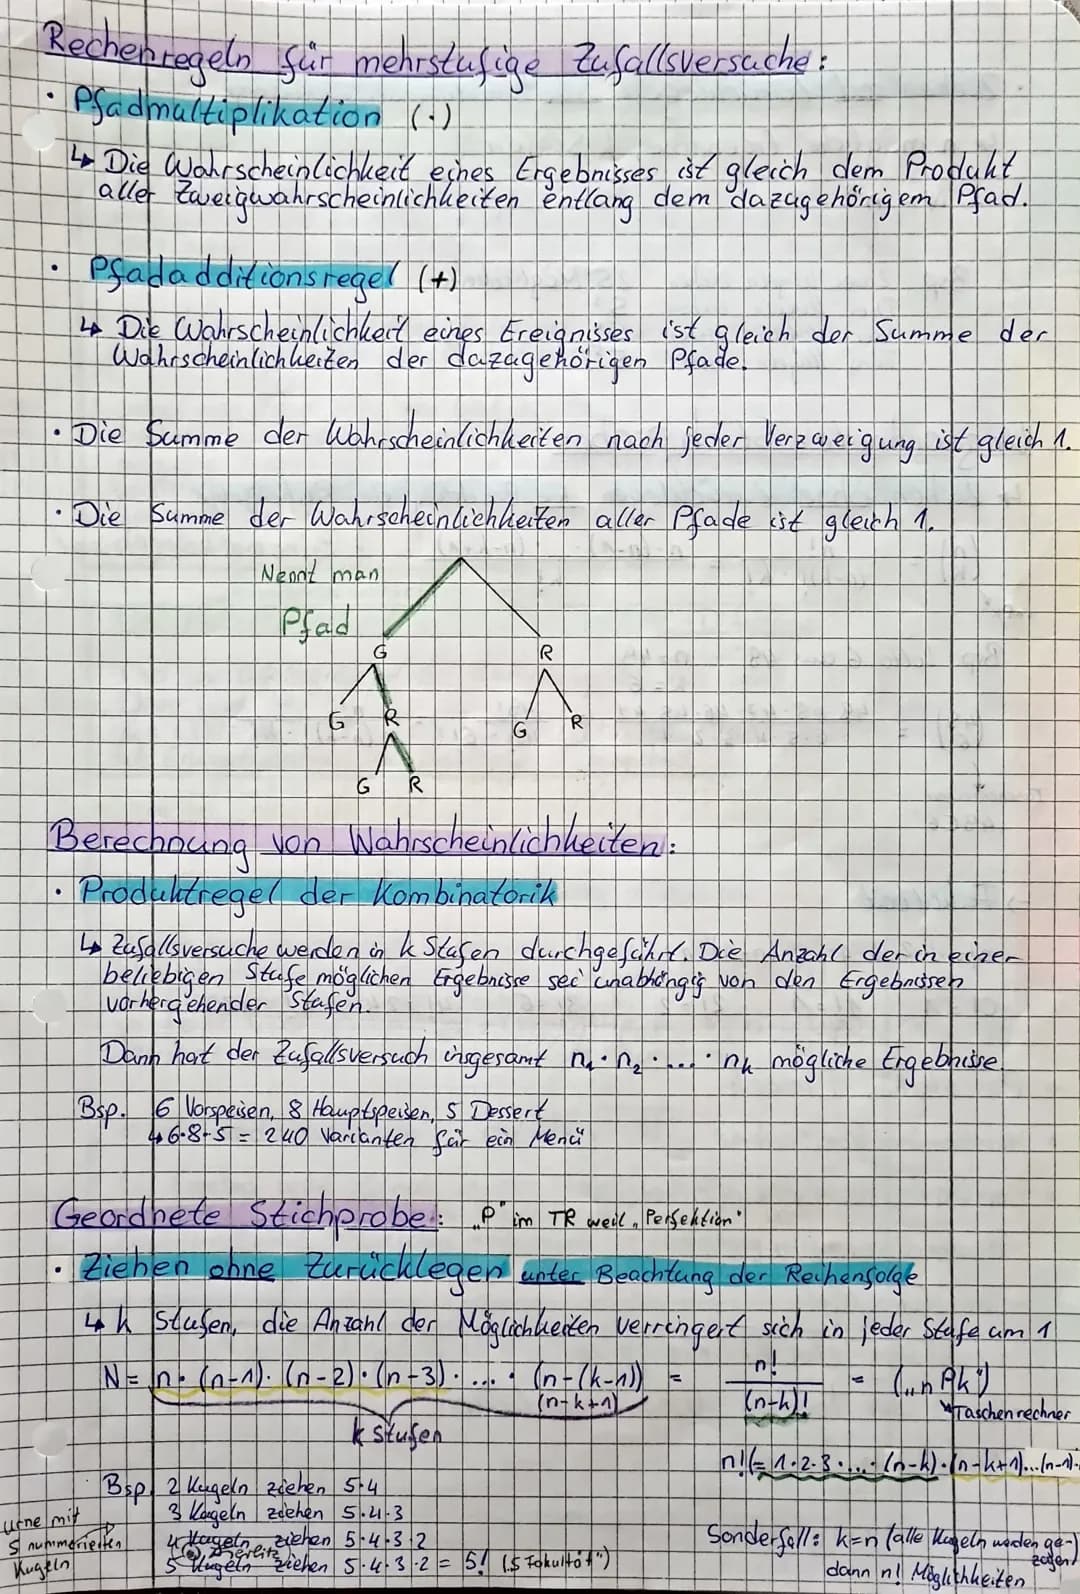 Rechenregeln für mehrstufige Zufallsversuche:
• Pfadmultiplikation (·)
↳ Die Wahrscheinlichkeit eines Ergebnisses ist gleich dem Produkt
aller Zweigwahrscheinlichkeiten entlang dem dazugehörigem Pfad.
• Pfadadditionsregel (+)
↳ Die Wahrscheinlichkeit eines Ereignisses ist gleich der Summe der
Wahrscheinlichkeiten der dazugehörigen Pfade.
• Die Summe der Wahrscheinlichkeiten nach jeder Verzweigung ist gleich 1.
• Die Summe der Wahrscheinlichkeiten aller Pfade ist gleich 1.
Nennt man
Pfad
G R
G R G R
G R
Berechnung von Wahrscheinlichkeiten:
• Produktregel der Kombinatorik
↳ Zufallsversuche werden in k Stufen durchgeführt. Die Anzahl der in einer
beliebigen Stufe möglichen Ergebnisse sei unabhängig von den Ergebnissen
vorhergehender Stufen.
Dann hat der Zufallsversuch insgesamt n₁ · n₂ · ... · nₖ mögliche Ergebnisse.
Bsp. 6 Vorspeisen, 8 Hauptspeisen, 5 Dessert
↳ 6·8·5 = 240 Varianten für ein Menü
Geordnete Stichprobe: „P" im TR weil „Perfektion"
• Ziehen ohne Zurücklegen unter Beachtung der Reihenfolge
↳ k Stufen, die Anzahl der Möglichkeiten verringert sich in jeder Stufe um 1
N = n · (n-1) · (n-2) · (n-3) · ... · (n-(k-1)) = n!/(n-k)! = („n P k")
(n-k+1)
Taschenrechner
k Stufen
n! (= 1·2·3·...·(n-k)·(n-k+1)...(n-1)·
Bsp. 2 Kugeln ziehen 5·4
3 Kugeln ziehen 5·4·3
Urne mit
5 nummerierten
Kugeln
4 Kugeln ziehen 5·4·3·2
5 Kugeln ziehen 5·4·3·2 = 5! („5 Fakultät")
Sonderfall: k=n (alle Kugeln werden ge-
zogen)
dann n! Möglichkeiten